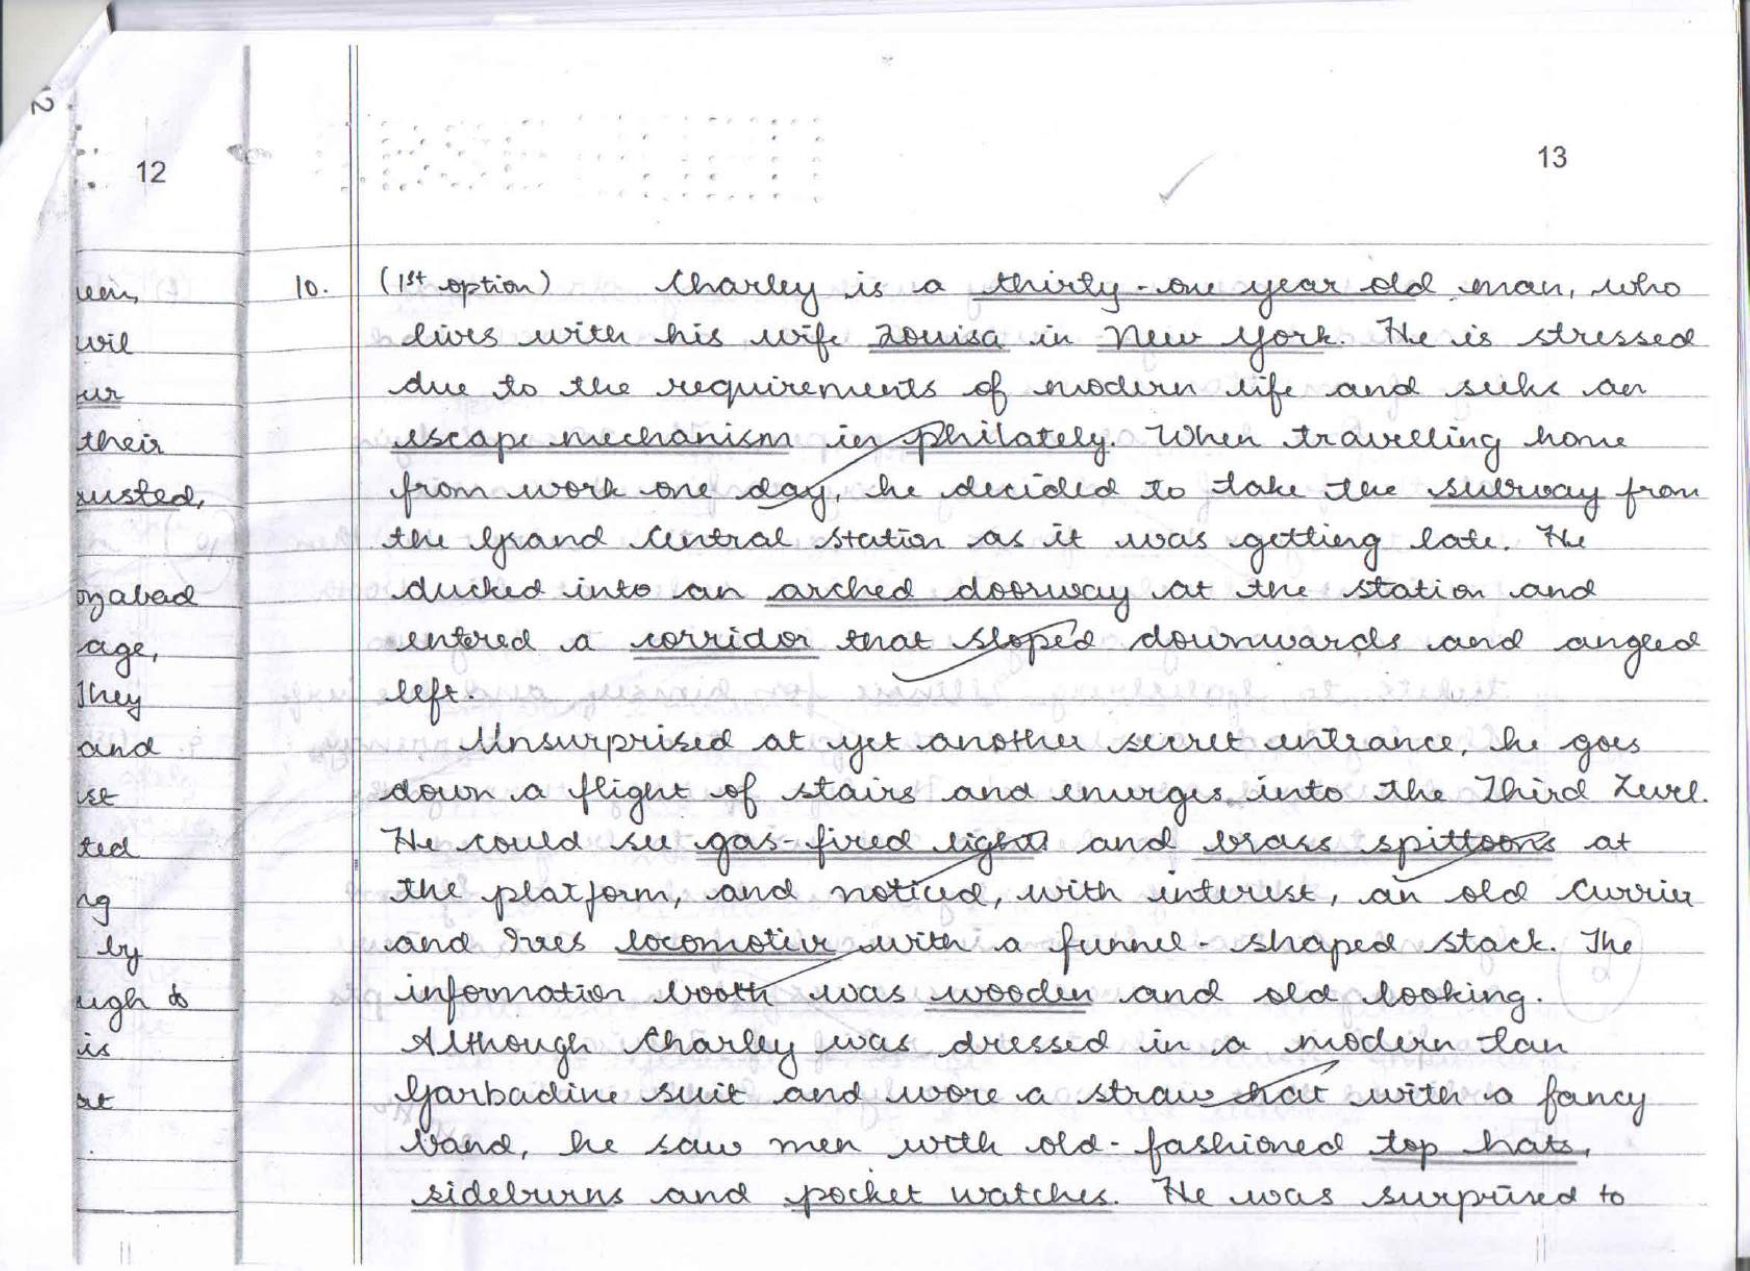 2
12
13
een,
wil
ur
their
usted,
ozabad
age,
They
and
st
ted
ng
by
ugh to
is
at
10. (1st option) Charley is a thirty-one year old man, who
lives with his wife Louisa in New York. He is stressed
due to the requirements of modern life and seeks an
escape mechanism in philately. When travelling home
from work one day, he decided to take the subway from
the Grand Central Station as it was getting late. He
ducked into an arched doorway at the station and
entered a corridor that sloped downwards and angled
left.
Unsurprised at yet another secret entrance, he goes
down a flight of stairs and emerges into the Third Level.
He could see gas-fired lights and brass spittoons at
the platform, and noticed, with interest, an old Currier
and Ives locomotive with a funnel-shaped stack. The
information booth was wooden and old looking.
Although Charley was dressed in a modern tan
Garbadine suit and wore a straw hat with a fancy
band, he saw men with old-fashioned top hats,
sideburns and pocket watches. He was surprised to